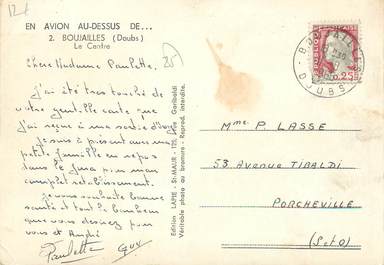 12 f
EN AVION AU-DESSUS DE...
2. BOUJAILLES (Doubs)
Le Centre
Chère Madame Paulette,
J'ai été très touché de
votre gentille carte que
j'ai reçue à ma sortie d'
Je suis à présent avec ma
petite famille en repos
dans le Jura pour mon
complet rétablissement.
Je vous souhaite bonne
santé et tout le bonheur
que vous désirez pour
vous et André
Paulette Guy
Edition LAPIE - St-MAUR - 125, Ave Garibaldi
Véritable photo au bromure - Reprod. interdite.
BOUJAILLES
DOUBS
0,25
Mme P. LASSE
53 Avenue TIBALDI
PORCHEVILLE
(S-&-O)